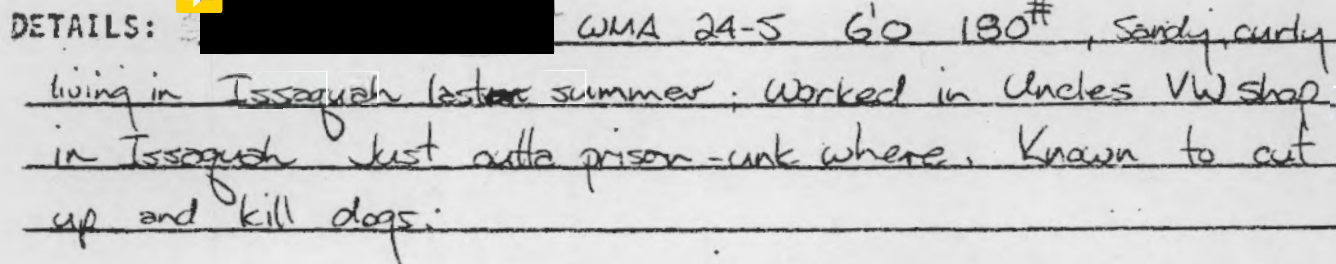 DETAILS: WMA 24-5 6'0 180# , Sandy, curly
living in Issaquah last summer. Worked in Uncles VW shop
in Issaquah Just outta prison - unk where. Known to cut
up and kill dogs.